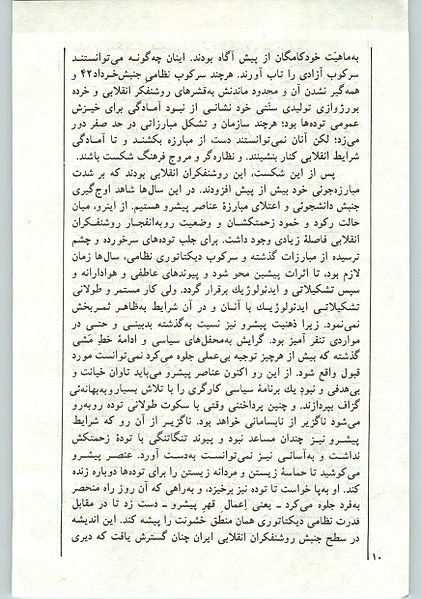 به‌ماهیّت خودکامگان از پیش آگاه بودند. اینان چه‌گونه می‌توانستند
سرکوب آزادی را تاب آورند. هرچند سرکوب نظامی جنبش‌خرداد۴۲ و
همه‌گیر نشدن آن و محدود ماندنش به‌قشرهای روشنفکر انقلابی و خرده
بورژوازی تولیدی سنّتی خود نشانی از نبود آمادگی برای خیزش
عمومی توده‌ها بود؛ هرچند سازمان و تشکل مبارزاتی در حد صفر دور
می‌زد؛ لکن آنان نمی‌توانستند دست از مبارزه بکشند و تا آمادگی
شرایط انقلابی کنار بنشینند. و نظاره‌گر و مروج فرهنگ شکست باشند.
پس از این شکست، این روشنفکران انقلابی بودند که بر شدت
مبارزه‌جوئی خود بیش از پیش افزودند. در این سال‌ها شاهد اوج‌گیری
جنبش دانشجوئی و اعتلای مبارزهٔ عناصر پیشرو هستیم. از اینرو، میان
حالت رکود و خمود زحمتکشان و وضعیت روبه‌انفجار روشنفکران
انقلابی فاصلهٔ زیادی وجود داشت. برای جلب توده‌های سرخورده و چشم
ترسیده از مبارزات گذشته و سرکوب دیکتاتوری نظامی، سال‌ها زمان
لازم بود، تا اثرات پیشین محو شود و پیوندهای عاطفی و هوادارانه و
سپس تشکیلاتی و ایدئولوژیك برقرار گردد. ولی کار مستمر و طولانی
تشکیلاتی ایدئولوژیك با آنان و در آن شرایط به‌ظاهر ثمربخش
نمی‌نمود. زیرا ذهنیت پیشرو نیز نسبت به‌گذشته بدبینی و حتی در
مواردی تنفر آمیز بود. گرایش به‌محفل‌های سیاسی و ادامهٔ خطِ مَشی
گذشته که بیش از هرچیز توجیه بی‌عملی جلوه می‌کرد نمی‌توانست مورد
قبول واقع شود. از این رو اکنون عناصر پیشرو می‌باید تاوان خیانت و
بی‌هدفی و نبودِ یك برنامهٔ سیاسی کارگری را با تلاش بسیار و به‌بهائی
گزاف بپردازند. و چنین پرداختنی وقتی با سکوت طولانی توده روبه‌رو
می‌شود ناگزیر از نابسامانی خواهد بود. ناگزیر از آن رو که شرایط
پیشرو نیز چندان مساعد نبود و پیوند تنگاتنگی با تودهٔ زحمتکش
نداشت و به‌آسانی نیز نمی‌توانست به‌دست آورد. عنصر پیشرو
می‌کوشید تا حماسهٔ زیستن و مردانه زیستن را برای توده‌ها دوباره زنده
کند. او به‌پا خواست تا توده نیز برخیزد، و به‌راهی که آن روز راه منحصر
به‌فرد جلوه می‌کرد ـ یعنی اِعمال قهرِ پیشرو ـ دست زد تا در مقابل
قدرت نظامی دیکتاتوری همان منطق خشونت را پیشه کند. این اندیشه
در سطح جنبش روشنفکران انقلابی ایران چنان گسترش یافت که دیری
۱۰